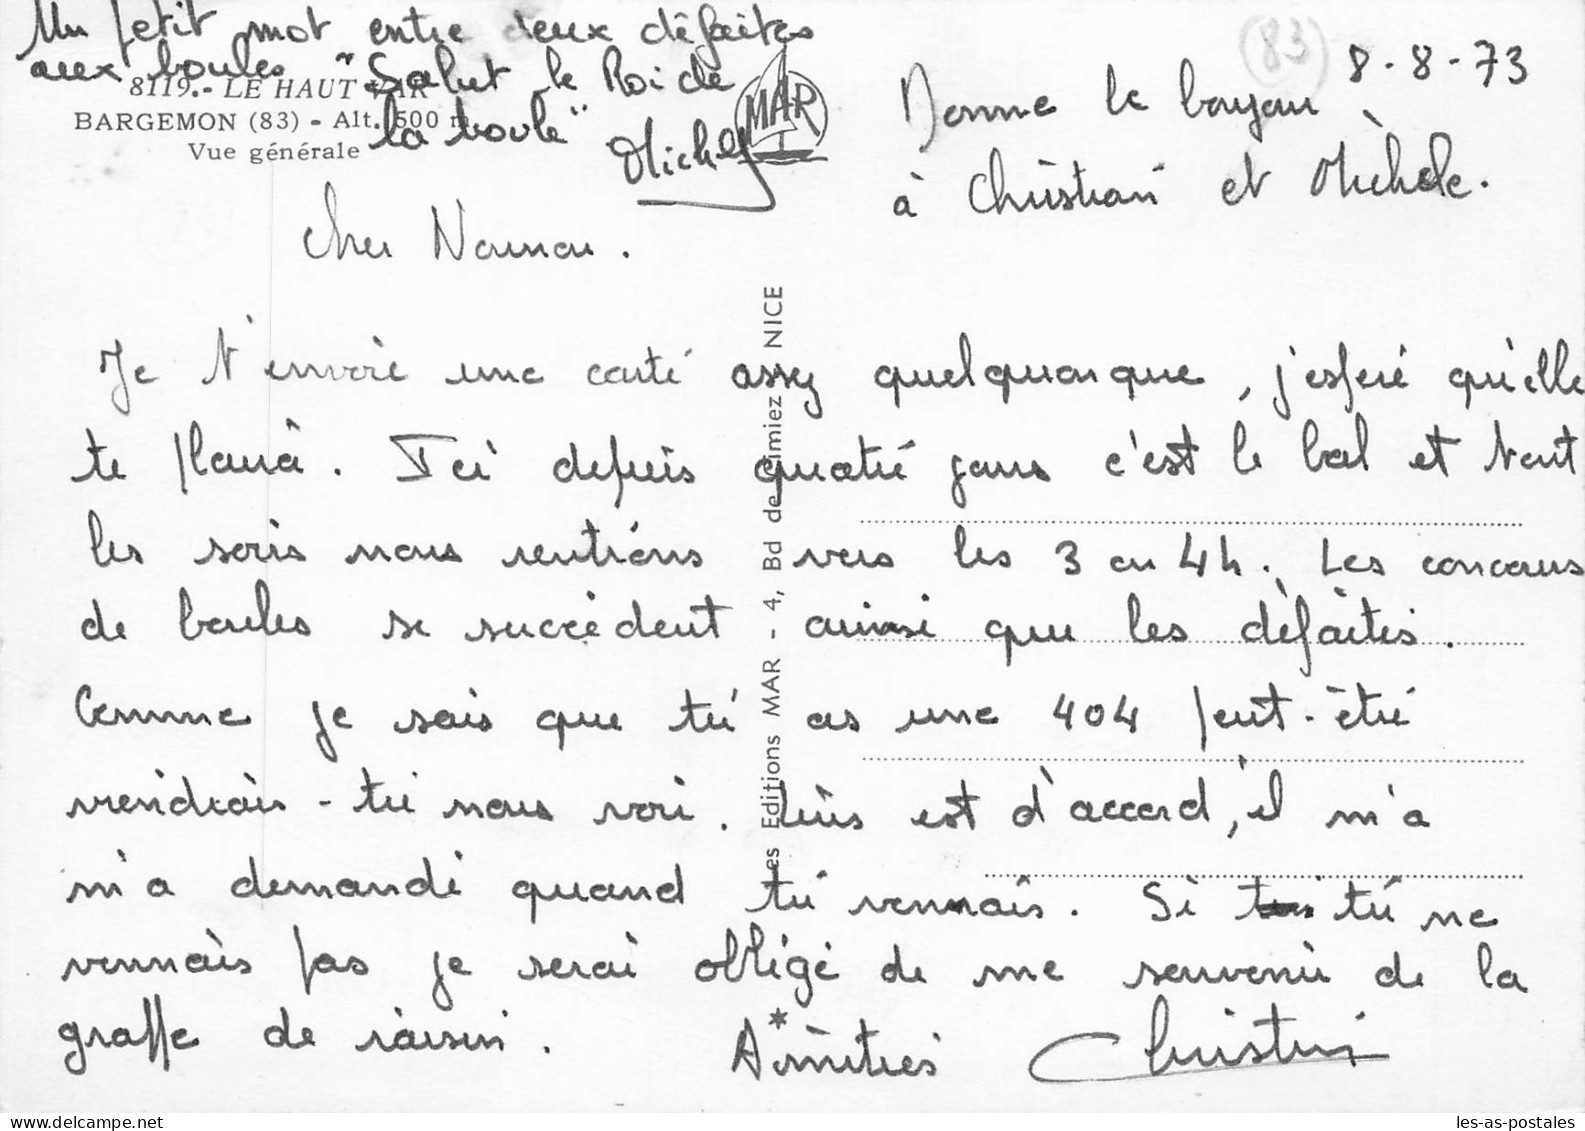 Un petit mot entre deux défaites
aux boules "Salut le Roi de
la boule" Michel
8119.- LE HAUT VAR
BARGEMON (83) - Alt. 500 m
Vue générale
MAR
83
8-8-73
Donne le boujou
à Christian et Michèle.
Cher Nounou.
Je t'envoie une carte assez quelquonque, j'espère qu'elle
te plaira. Ici depuis quatre jours c'est le bal et tout
les soirs nous rentrions vers les 3 ou 4h. Les concours
de boules se succèdent ainsi que les défaites.
Comme je sais que tu as une 404 peut-être
viendrais-tu nous voir. est d'accord, il m'a
m'a demandé quand tu vennais. Si tu ne
vennais pas je serai obligé de me souvenir de la
graffe de raisin. Amitiés Christian
Les Editions MAR - 4, Bd de Cimiez - NICE
*
delcampe.net
les-as-postales